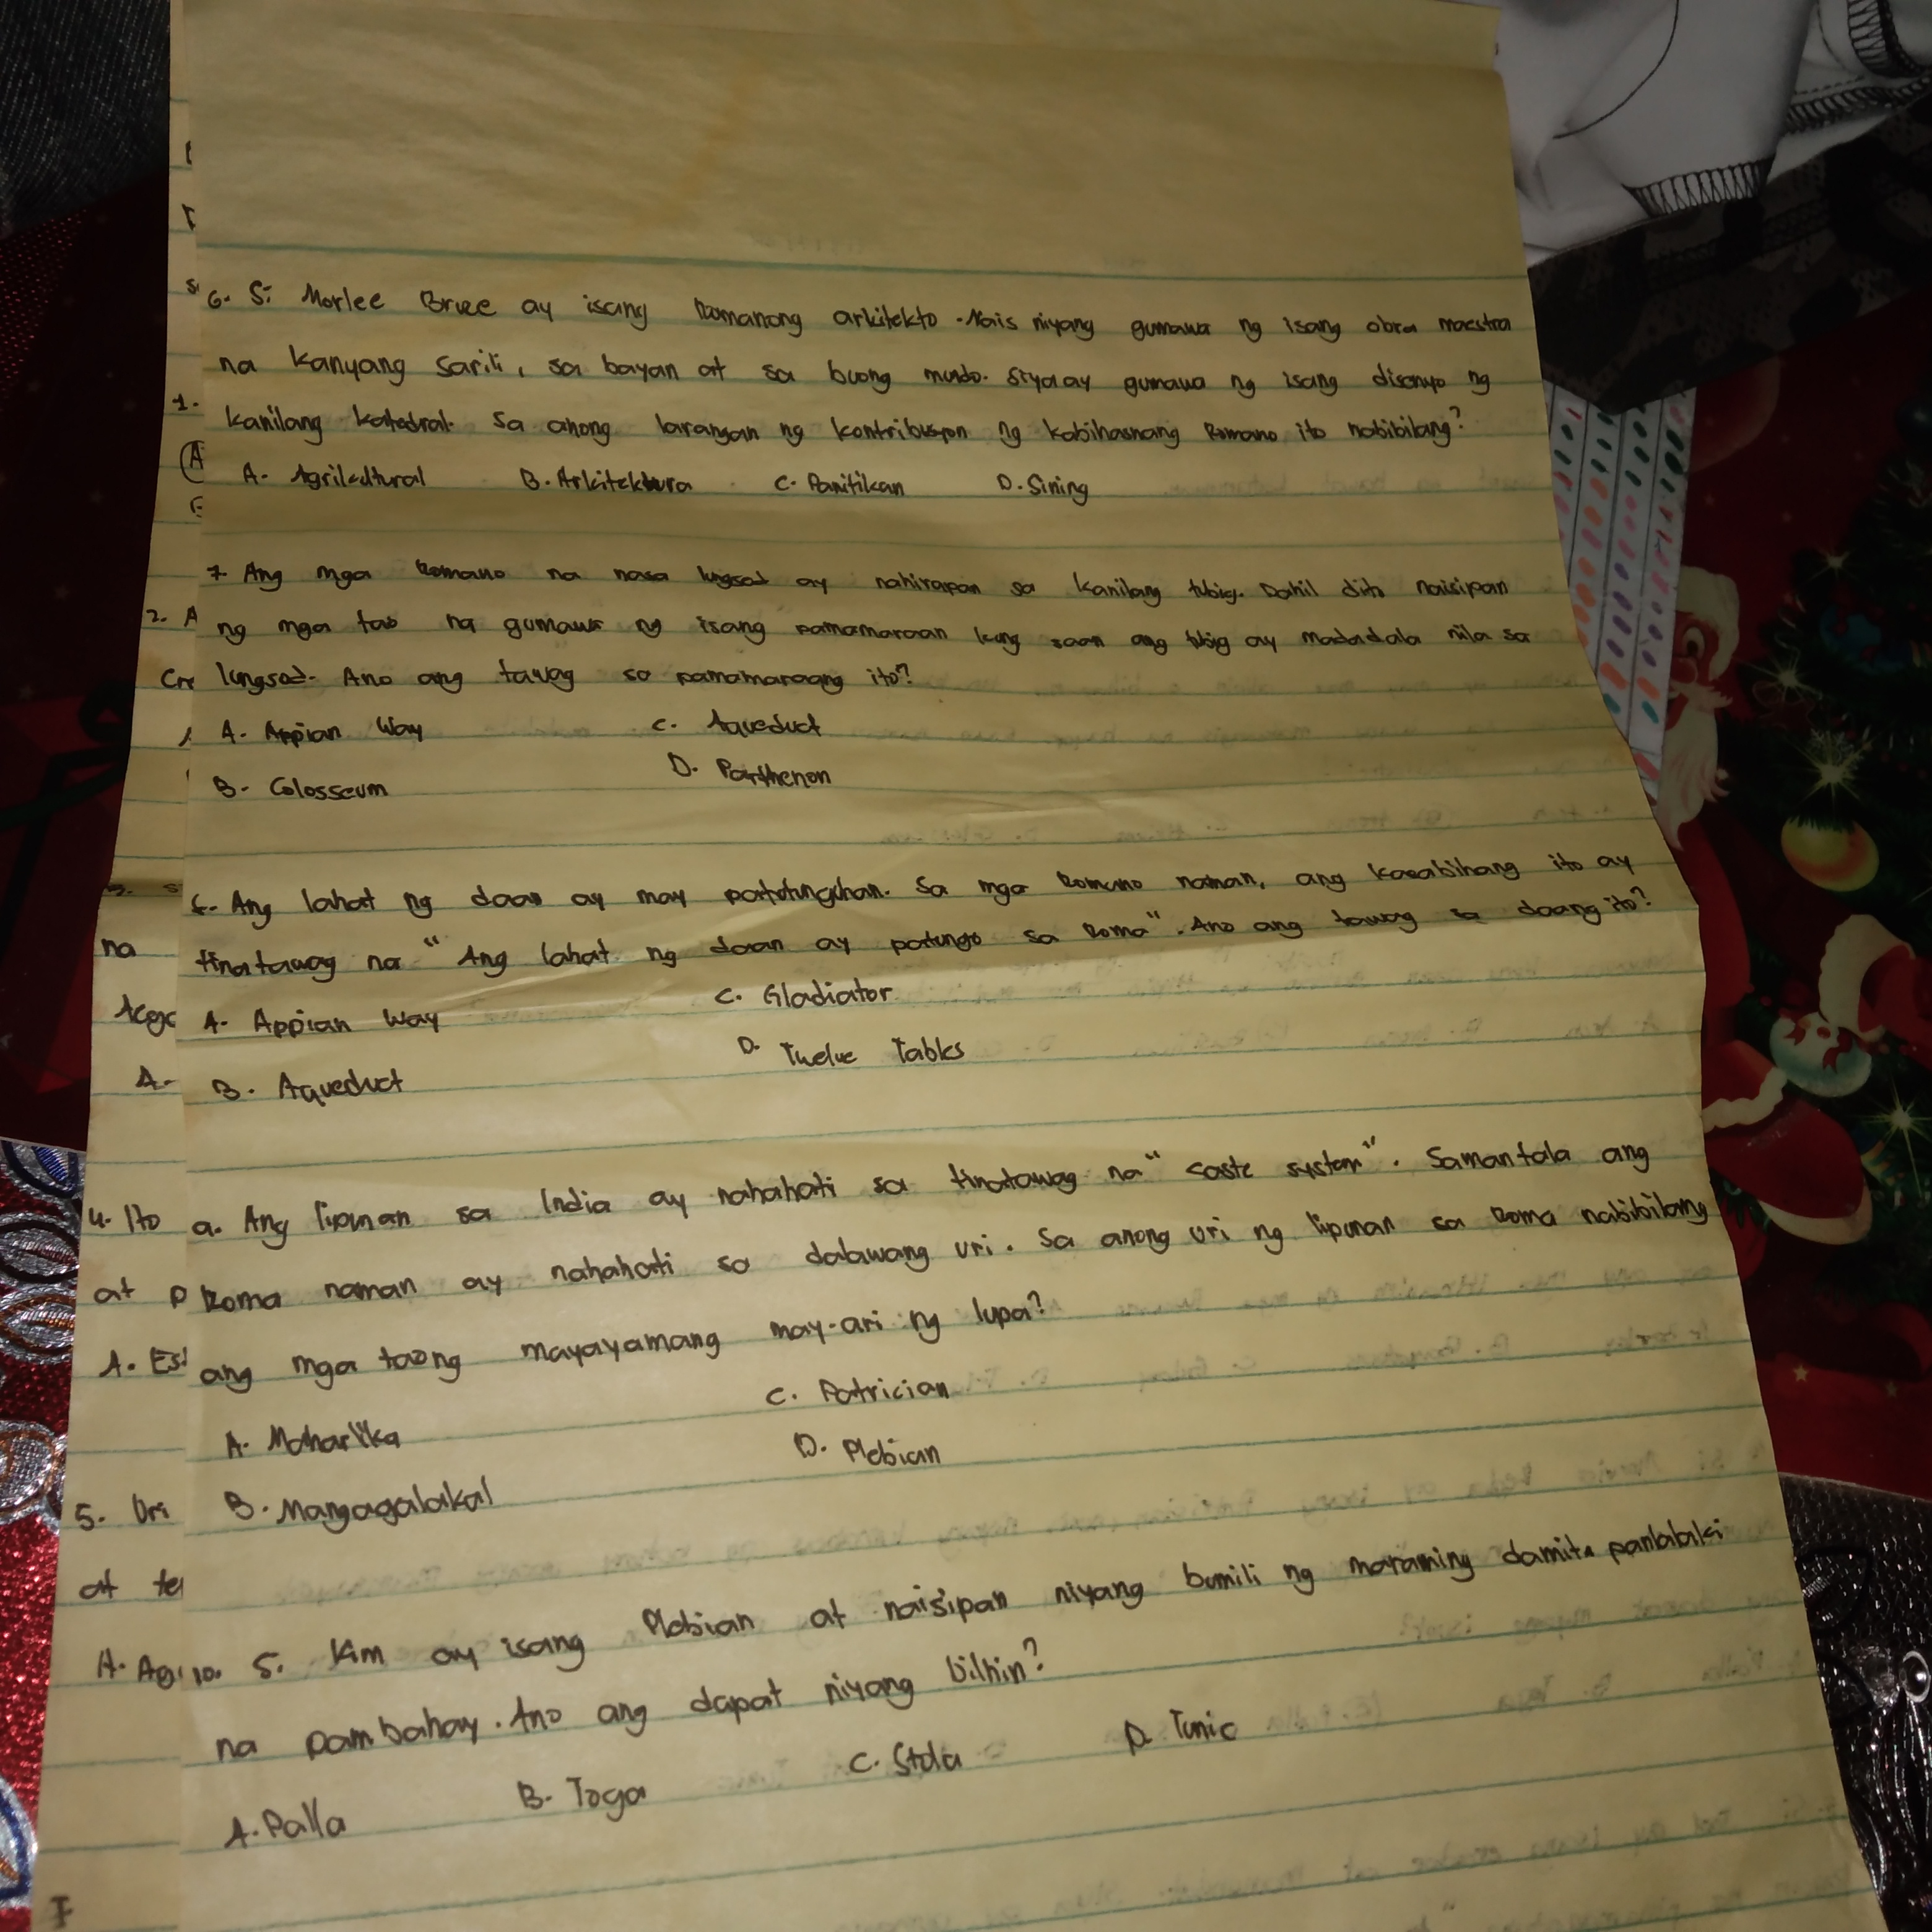 6. Si Morlee Bruce ay isang Romanong arkitekto. Nais niyang gumawa ng isang obra maestra
na kanyang sarili, sa bayan at sa buong mundo. Siya ay gumawa ng isang disenyo ng
kanilang katedral. Sa anong larangan ng kontribusyon ng kabihasnang Romano ito nabibilang?
A. Agrikultural B. Arkitektura C. Panitikan D. Sining
7. Ang mga Romano na nasa lungsod ay nahirapan sa kanilang tubig. Dahil dito naisipan
ng mga tao na gumawa ng isang pamamaraan kung saan ang tubig ay madadala nila sa
lungsod. Ano ang tawag sa pamamaraang ito?
A. Appian Way C. Aqueduct
B. Colosseum D. Parthenon
Ang lahat ng daan ay may patutunguhan. Sa mga Romano naman, ang kasabihang ito ay
tinatawag na "Ang lahat ng daan ay patungo sa Roma". Ano ang tawag sa daang ito?
A. Appian Way C. Gladiator
B. Aqueduct D. Twelve Tables
a. Ang lipunan sa India ay nahahati sa tinatawag na "caste system". Samantala ang
Roma naman ay nahahati sa dalawang uri. Sa anong uri ng lipunan sa Roma nabibilang
ang mga taong mayayamang may-ari ng lupa?
A. Maharlika C. Patrician
B. Mangagalakal D. Plebian
10. S. Kim ay isang Plebian at naisipan niyang bumili ng maraming damit panlalaki
na pambahay. Ano ang dapat niyang bilhin?
A. Palla B. Toga C. Stola D. Tunic
1.
A
2. A
na
A.
4. Ito
at P
5. Uri
at